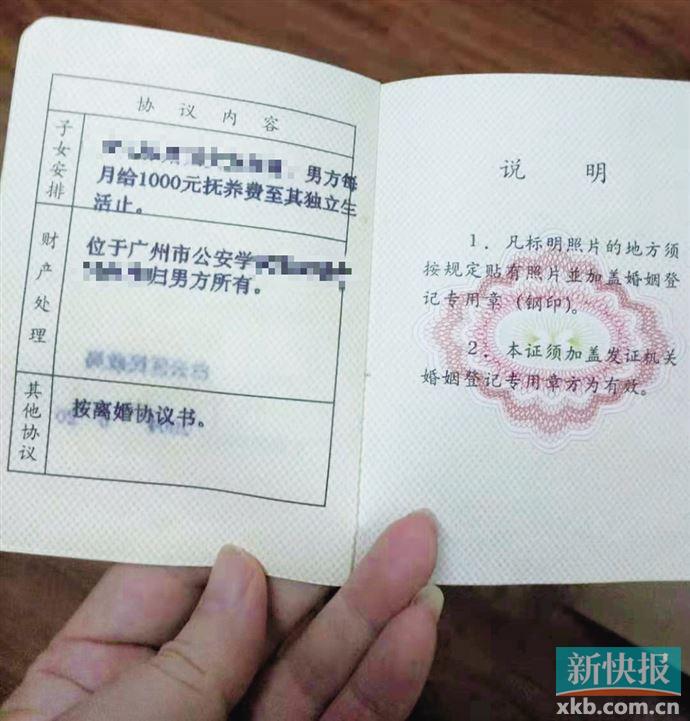 协议内容
子女安排
男方每
月给1000元抚养费至其独立生
活止。
财产处理
位于广州市公安学
归男方所有。
其他协议
按离婚协议书。
说 明
1．凡标明照片的地方须
按规定贴有照片並加盖婚姻登
记专用章(钢印)。
2．本证须加盖发证机关
婚姻登记专用章方为有效。
新快报
xkb.com.cn